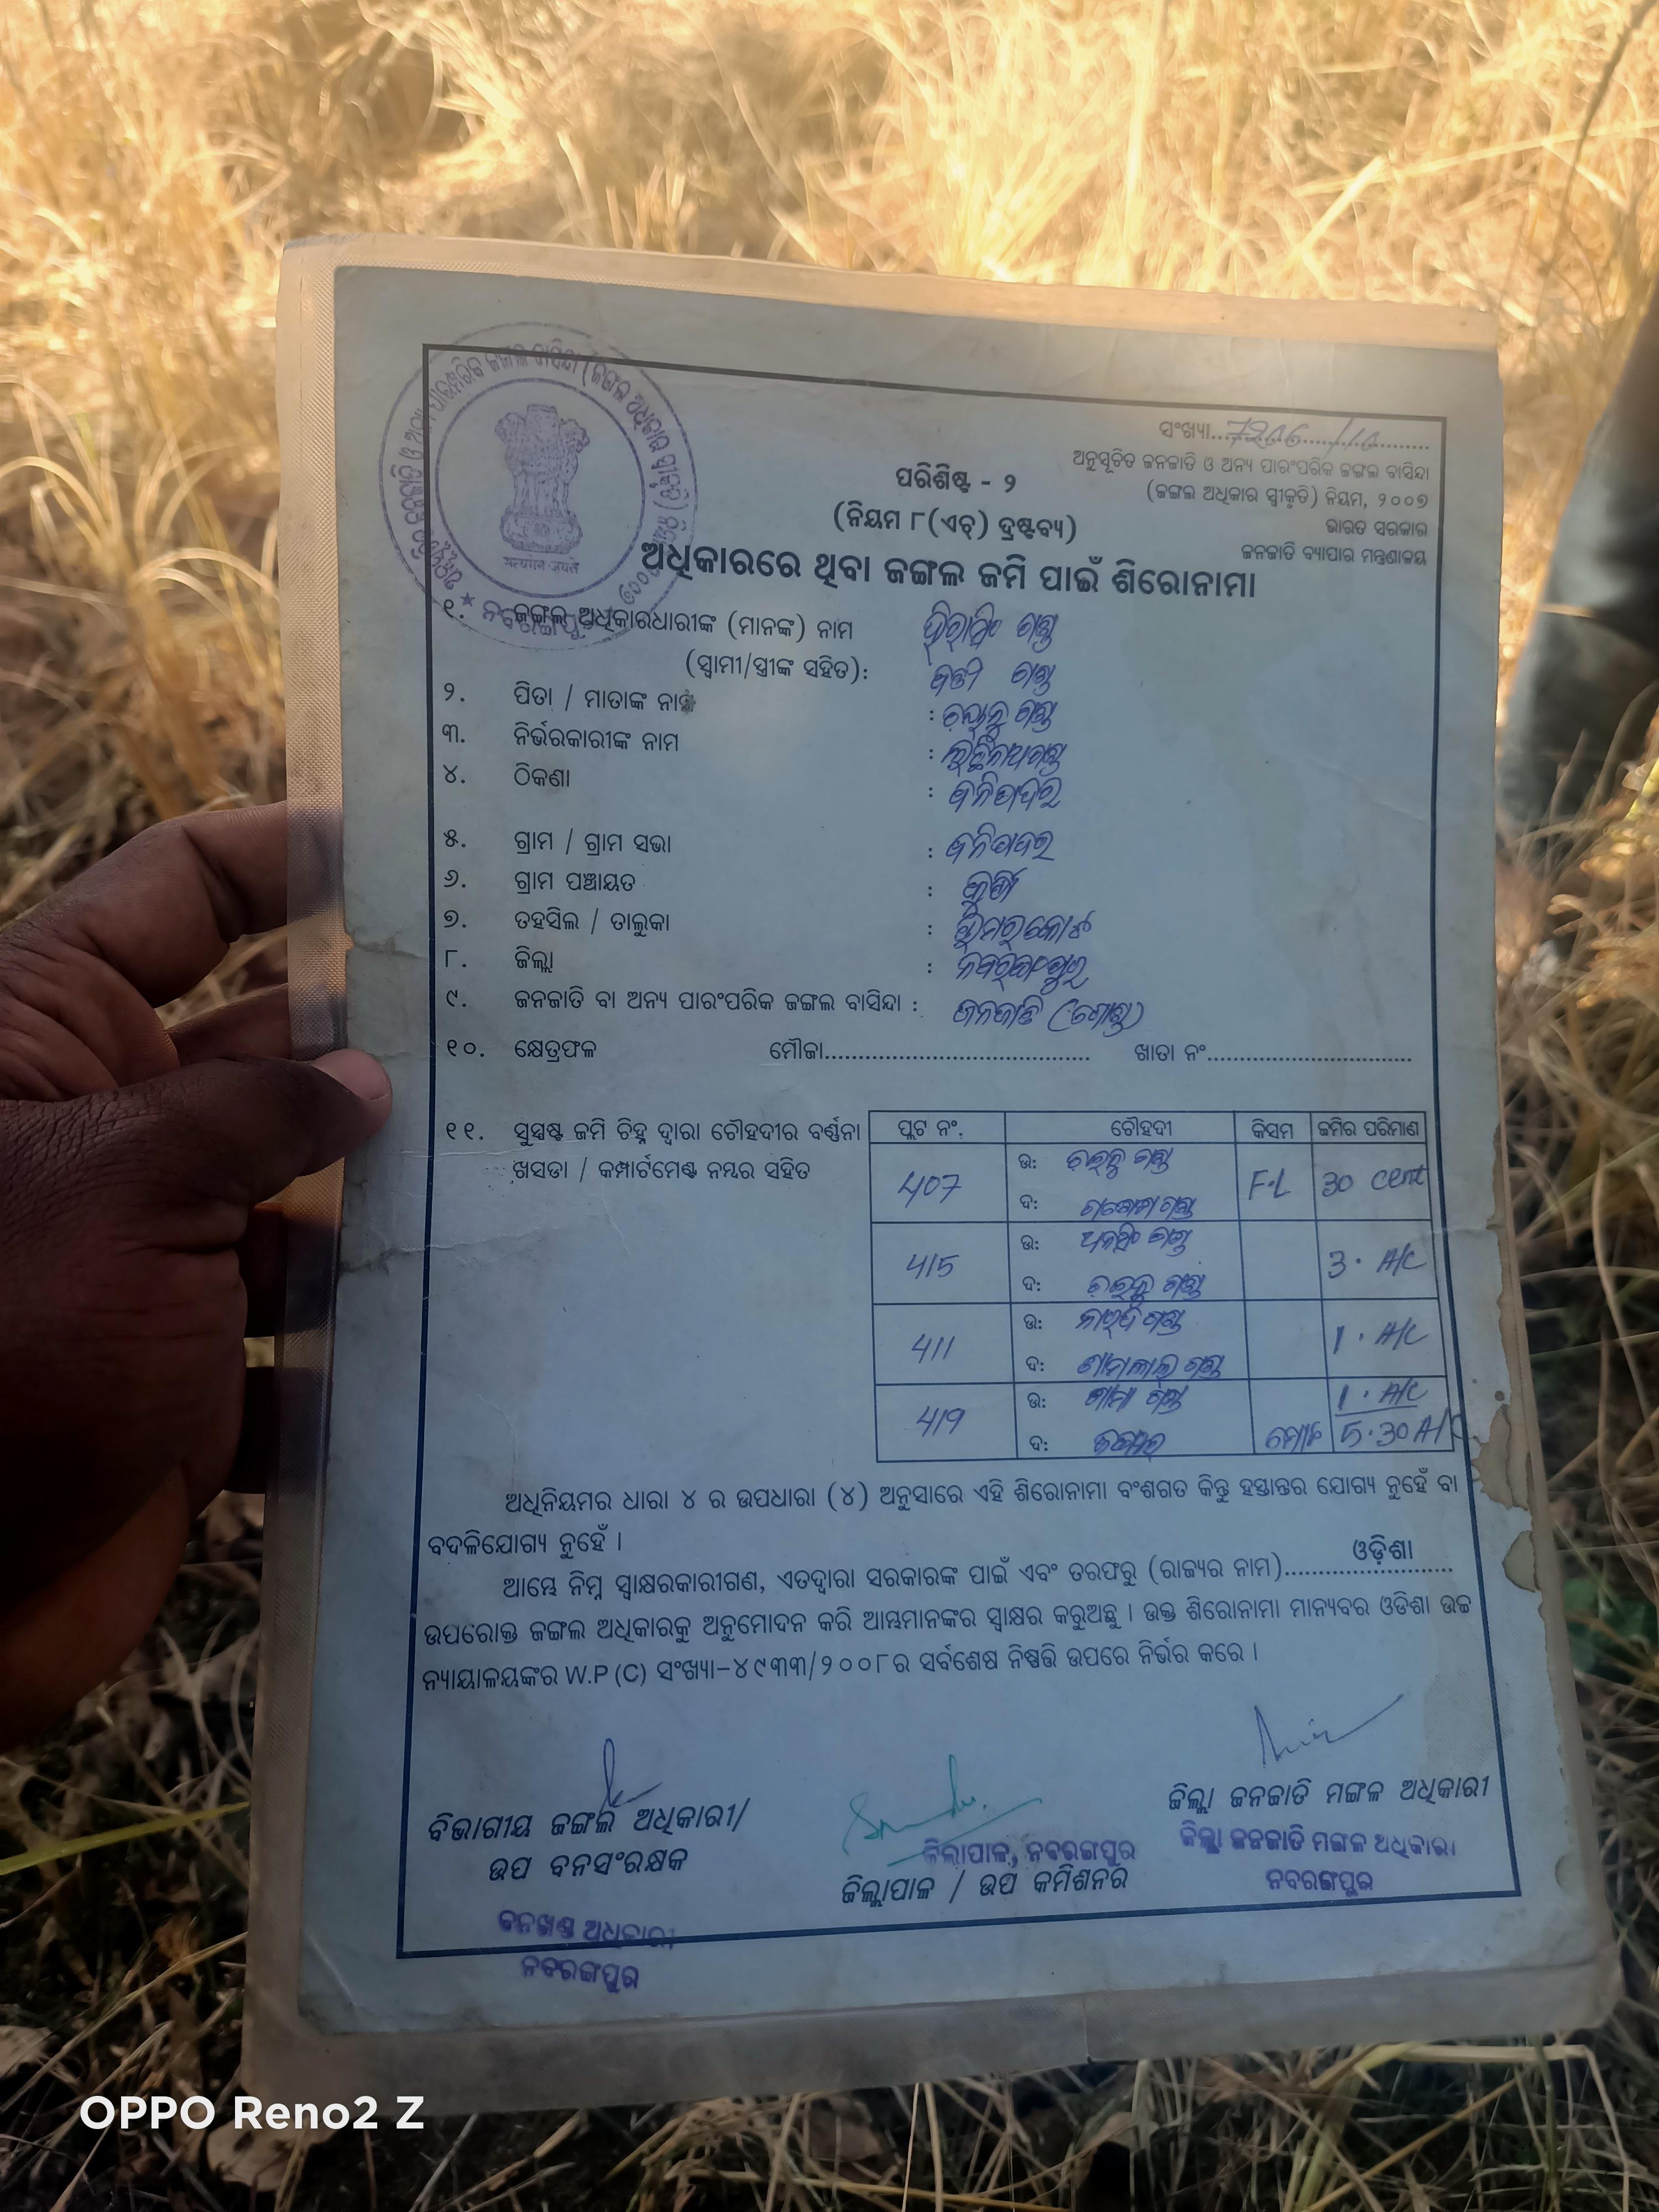 ସଂଖ୍ୟା....7206/10....
ଅନୁସୂଚିତ ଜନଜାତି ଓ ଅନ୍ୟ ପାରଂପରିକ ଜଙ୍ଗଲ ବାସିନ୍ଦା
(ଜଙ୍ଗଲ ଅଧିକାର ସ୍ୱୀକୃତି) ନିୟମ, ୨୦୦୭
ଭାରତ ସରକାର
ଜନଜାତି ବ୍ୟାପାର ମନ୍ତ୍ରଣାଳୟ
ପରିଶିଷ୍ଟ - ୨
(ନିୟମ ୮(ଏଚ୍) ଦ୍ରଷ୍ଟବ୍ୟ)
ଅଧିକାରରେ ଥିବା ଜଙ୍ଗଲ ଜମି ପାଇଁ ଶିରୋନାମା
सत्यमेव जयते
ନବରଙ୍ଗପୁର
୧. ଜଙ୍ଗଲ ଅଧିକାରଧାରୀଙ୍କ (ମାନଙ୍କ) ନାମ ହିରାସିଂ ଗଣ୍ଡ
(ସ୍ୱାମୀ/ସ୍ତ୍ରୀଙ୍କ ସହିତ): ଗଣ୍ଡ
୨. ପିତା / ମାତାଙ୍କ ନାମ : ଗଣ୍ଡ
୩. ନିର୍ଭରକାରୀଙ୍କ ନାମ :
୪. ଠିକଣା :
୫. ଗ୍ରାମ / ଗ୍ରାମ ସଭା :
୬. ଗ୍ରାମ ପଞ୍ଚାୟତ :
୭. ତହସିଲ / ତାଲୁକା :
୮. ଜିଲ୍ଲା : ନବରଂଗପୁର
୯. ଜନଜାତି ବା ଅନ୍ୟ ପାରଂପରିକ ଜଙ୍ଗଲ ବାସିନ୍ଦା : ଜନଜାତି (ଗୋଣ୍ଡ)
୧୦. କ୍ଷେତ୍ରଫଳ ମୌଜା.................... ଖାତା ନଂ....................
୧୧. ସୁସ୍ପଷ୍ଟ ଜମି ଚିହ୍ନ ଦ୍ୱାରା ଚୌହଦୀର ବର୍ଣ୍ଣନା
ଖସଡା / କମ୍ପାର୍ଟମେଣ୍ଟ ନମ୍ବର ସହିତ
ପ୍ଲଟ ନଂ. ଚୌହଦୀ କିସମ ଜମିର ପରିମାଣ
407 ଉ: ଗଣ୍ଡ F.L 30 cent
ଦ: ଗଣ୍ଡ
415 ଉ: ଗଣ୍ଡ 3. A/C
ଦ: ଗଣ୍ଡ
411 ଉ: ଗଣ୍ଡ 1. A/C
ଦ: ଗଣ୍ଡ
419 ଉ: ଗଣ୍ଡ 1. A/C
ଦ: ମୋଟ 5.30 A/C
ଅଧିନିୟମର ଧାରା ୪ ର ଉପଧାରା (୪) ଅନୁସାରେ ଏହି ଶିରୋନାମା ବଂଶଗତ କିନ୍ତୁ ହସ୍ତାନ୍ତର ଯୋଗ୍ୟ ନୁହେଁ ବା
ବଦଳିଯୋଗ୍ୟ ନୁହେଁ ।
ଆମ୍ଭେ ନିମ୍ନ ସ୍ୱାକ୍ଷରକାରୀଗଣ, ଏତଦ୍ଦ୍ୱାରା ସରକାରଙ୍କ ପାଇଁ ଏବଂ ତରଫରୁ (ରାଜ୍ୟର ନାମ)........ଓଡ଼ିଶା........
ଉପରୋକ୍ତ ଜଙ୍ଗଲ ଅଧିକାରକୁ ଅନୁମୋଦନ କରି ଆମ୍ଭମାନଙ୍କର ସ୍ୱାକ୍ଷର କରୁଅଛୁ । ଉକ୍ତ ଶିରୋନାମା ମାନ୍ୟବର ଓଡିଶା ଉଚ୍ଚ
ନ୍ୟାୟାଳୟଙ୍କର W.P (C) ସଂଖ୍ୟା-୪୯୩୩/୨୦୦୮ର ସର୍ବଶେଷ ନିଷ୍ପତ୍ତି ଉପରେ ନିର୍ଭର କରେ ।
ବିଭାଗୀୟ ଜଙ୍ଗଲ ଅଧିକାରୀ/
ଉପ ବନସଂରକ୍ଷକ
ବନଖଣ୍ଡ ଅଧିକାରୀ
ନବରଙ୍ଗପୁର
ଜିଲାପାଳ, ନବରଙ୍ଗପୁର
ଜିଲ୍ଲାପାଳ / ଉପ କମିଶନର
ଜିଲ୍ଲା ଜନଜାତି ମଙ୍ଗଳ ଅଧିକାରୀ
ଜିଲ୍ଲା ଜନଜାତି ମଙ୍ଗଳ ଅଧିକାରୀ
ନବରଙ୍ଗପୁର
OPPO Reno2 Z